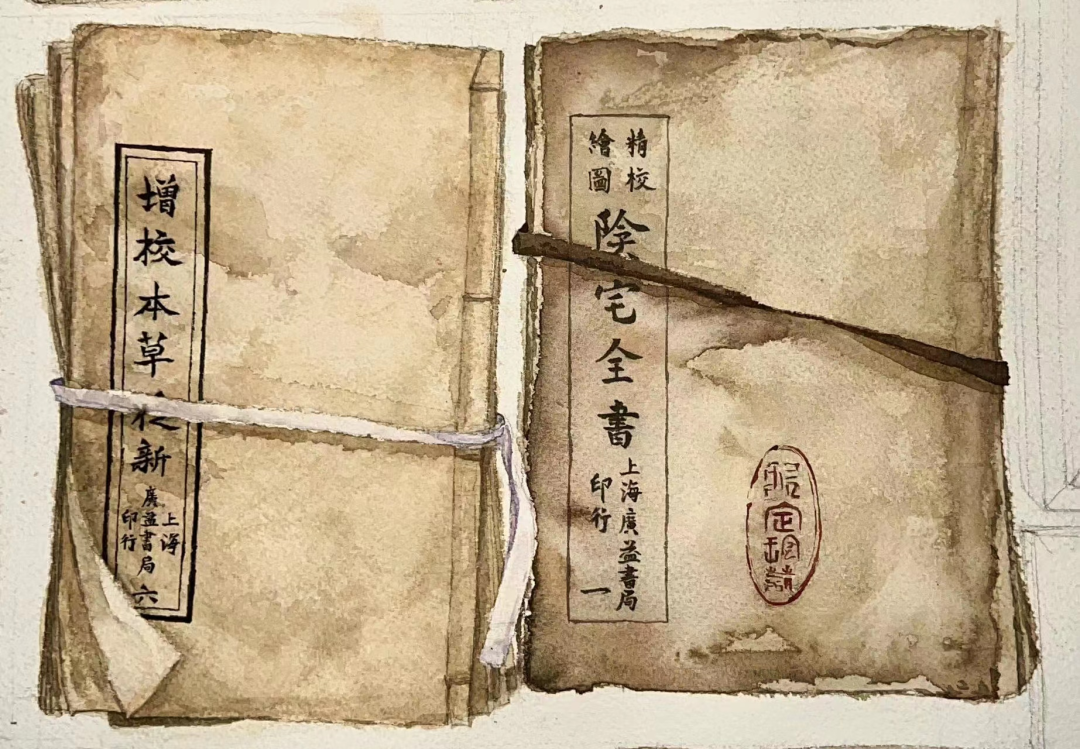 增校本草新
上海
廣益書局
印行
六
精校
繪圖
陰宅全書
上海廣益書局
印行
一